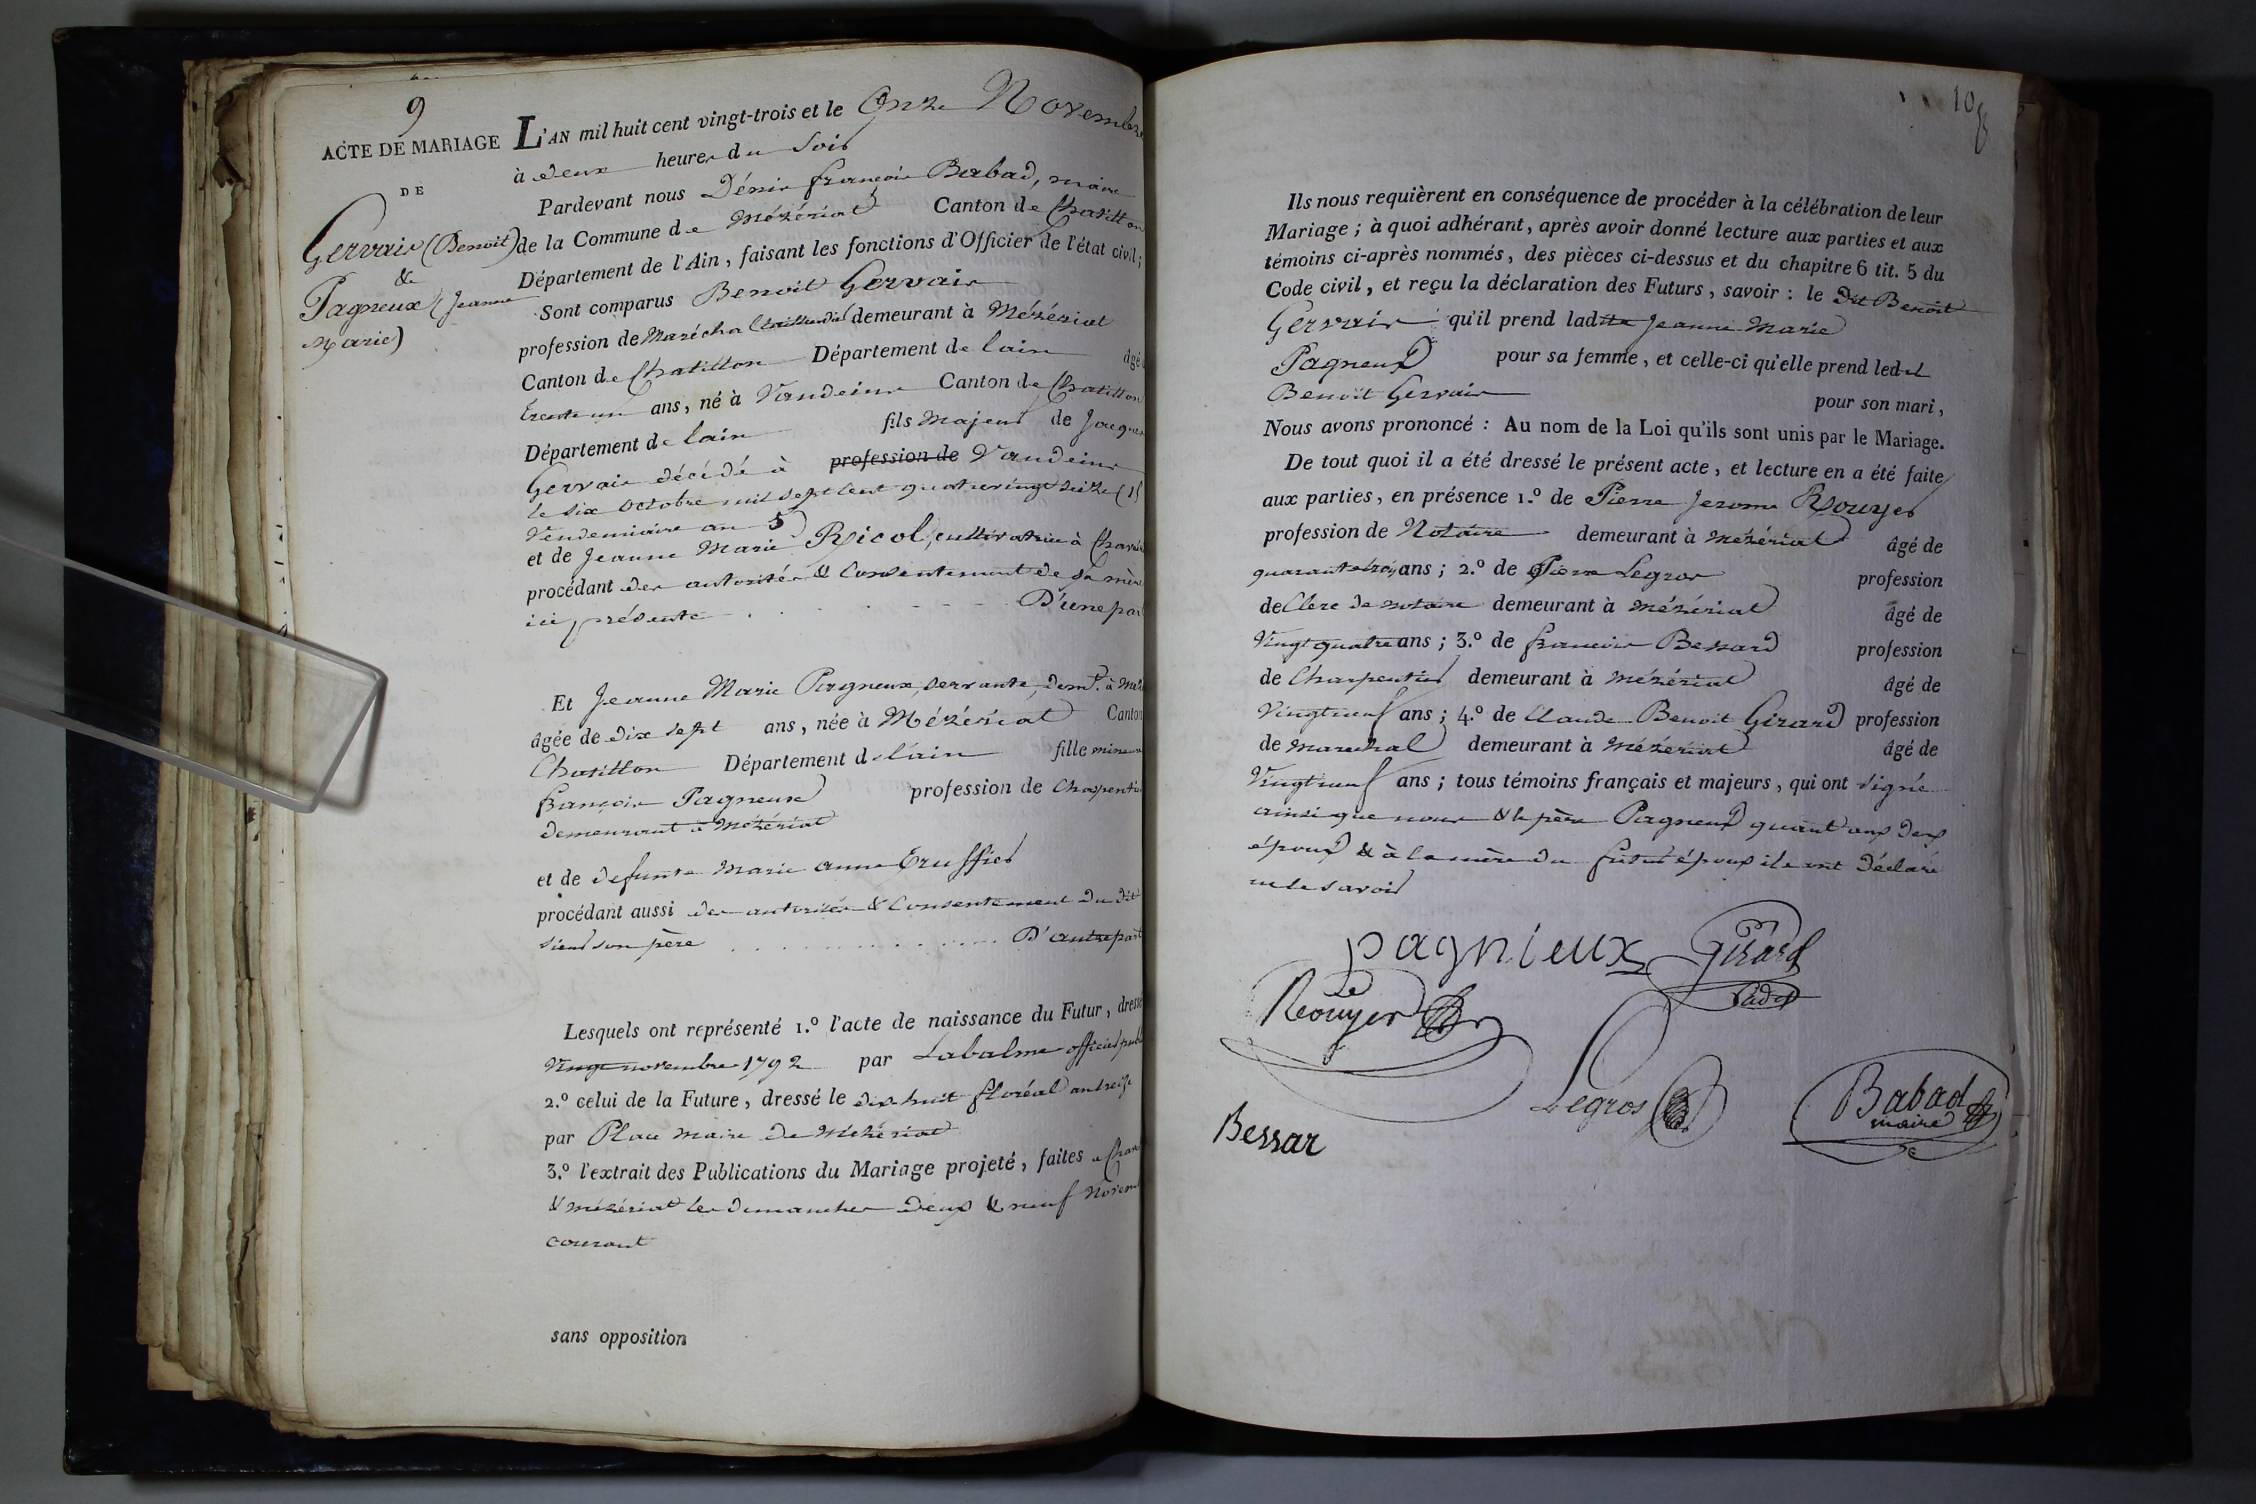 9
ACTE DE MARIAGE
DE
Gervais (Benoit)
&
Pagneux (Jeanne
Marie)
L'AN mil huit cent vingt-trois et le Onze Novembre
à deux heures du soir
Pardevant nous Dénis françois Babad, maire
de la Commune de Mézériat Canton de Chatillon
Département de l'Ain, faisant les fonctions d'Officier de l'état civil;
Sont comparus Benoit Gervais
profession de Maréchal demeurant à Mézériat
Canton de Chatillon Département de lain âgé
trente un ans, né à Vandeins Canton de Chatillon
Département de lain fils majeur de Jacques
Gervais décédé à profession de Vandeins
le six octobre mil sept cent quatrevingt seize (15
Vendemiaire an 5)
et de Jeanne Marie Ricol, cultivatrice à
procédant des autorités & consentement de sa mère
ici présente D'une part
Et Jeanne Marie Pagneux, servante, demt. à
âgée de dix sept ans, née à Mézériat Canton
Chatillon Département de lain fille mineure
françois Pagneux profession de Charpentier
demeurant à Mézériat
et de defunte Marie anne Truffier
procédant aussi des autorités & consentement du dit
sieur son père D'autre part
Lesquels ont représenté 1.º l'acte de naissance du Futur, dressé
Vingt novembre 1792 par Labalme officier public
2.º celui de la Future, dressé le dix huit floréal an treize
par Place maire de Mézériat
3.º l'extrait des Publications du Mariage projeté, faites a
& mézériat les dimanches deux & neuf Novembre
courant
sans opposition
108
Ils nous requièrent en conséquence de procéder à la célébration de leur
Mariage; à quoi adhérant, après avoir donné lecture aux parties et aux
témoins ci-après nommés, des pièces ci-dessus et du chapitre 6 tit. 5 du
Code civil, et reçu la déclaration des Futurs, savoir: le dit Benoit
Gervais qu'il prend ladite Jeanne Marie
Pagneux pour sa femme, et celle-ci qu'elle prend ledit
Benoit Gervais pour son mari,
Nous avons prononcé: Au nom de la Loi qu'ils sont unis par le Mariage.
De tout quoi il a été dressé le présent acte, et lecture en a été faite
aux parties, en présence 1.º de Pierre Jerome Rouyer
profession de Notaire demeurant à Mézériat âgé de
quarante trois ans; 2.º de Pierre Legros profession
de Clerc de notaire demeurant à mézériat âgé de
Vingt quatre ans; 3.º de francois Bessard profession
de Charpentier demeurant à mézériat âgé de
Vingtneuf ans; 4.º de Claude Benoit Girard profession
de marechal demeurant à mézériat âgé de
Vingtneuf ans; tous témoins français et majeurs, qui ont signé
ainsi que nous & le père Pagneux quant aux deux
époux & à la mère du futur époux ils ont déclaré
ne le savoir
pagnieux Girard
Rouyer
Legros
Babad
maire
Bessar